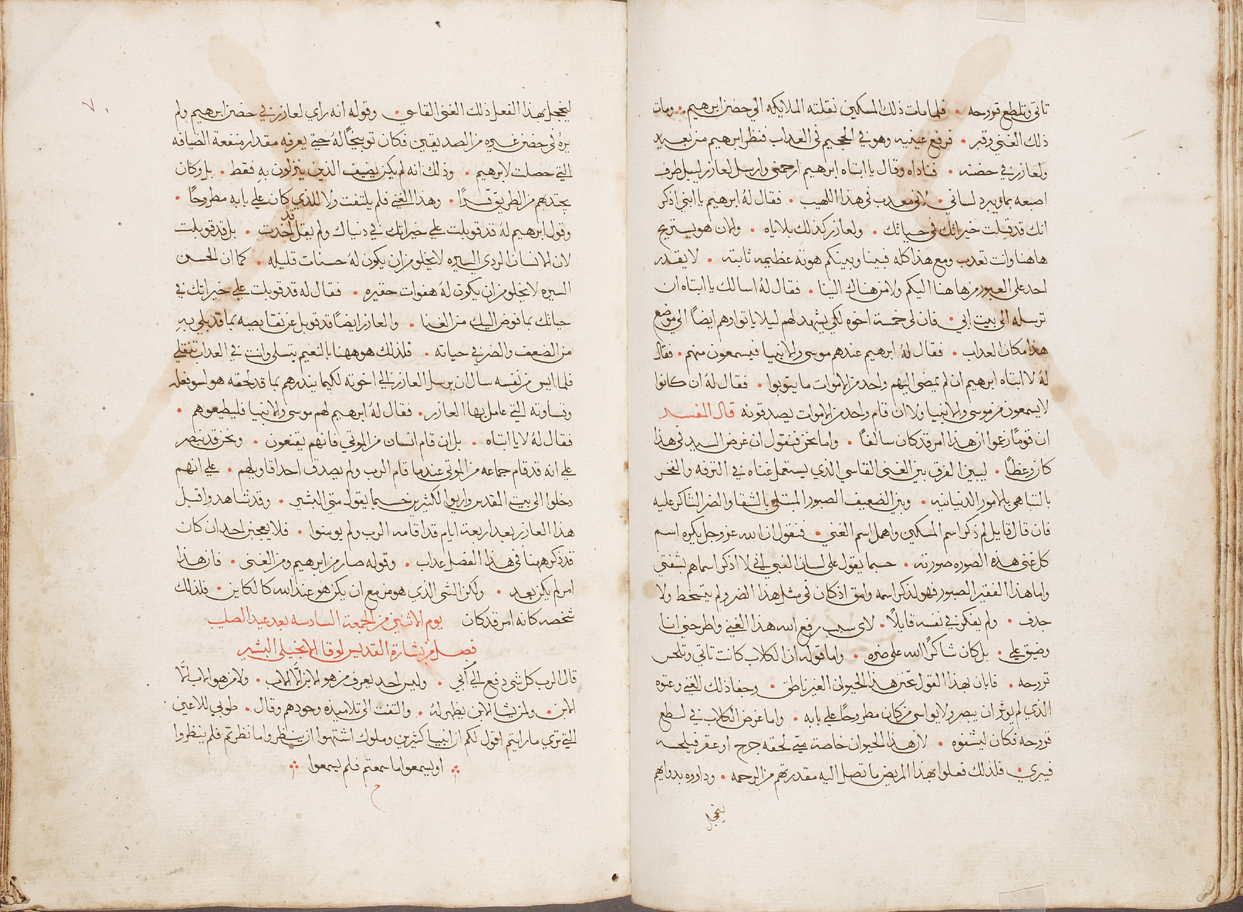 تاتي وتلطع قروحه • فلما مات ذلك المسكين نقلته الملايكه الى حضن ابرهيم • ومات
ذلك الغني وقبر • فرفع عينيه وهو في الجحيم في العداب فنظر ابرهيم من بعيد
ولعازر في حضنه • فناداه وقال يا ابتاه ابرهيم ارحمني وارسل لعازر ليبل طرف
اصبعه بما ويبرد لساني • لاني معدب في هذا اللهيب • فقال له ابرهيم يا ابني اذكر
انك قد قبلت خيراتك في حياتك • ولعازر كذلك بلاياه • والان هو يستريح
هاهنا وانت تعدب ومع هذا كله فبيننا وبينكم هوته عظيمه ثابته • لا يقدر
احد على العبور من هاهنا اليكم ولا من هناك الينا • فقال له اسالك يا ابتاه ان
ترسله الى بيت ابي • فان لي خمسة اخوه لكي يشهد لهم ليلا ياتوا هم ايضاً الى موضع
هذا مكان العداب • فقال له ابرهيم عندهم موسى والانبيا فيسمعون منهم • فقال
له لا يا ابتاه ابرهيم ان لم يمضي اليهم واحد من الاموات ما يتوبوا • فقال له ان كانوا
لا يسمعون من موسى والانبيا ولا ان قام واحد من الاموات يصدقونه قال المفسر
ان قوماً زعموا ان هذا امر قد كان سالفاً • واما نحن فنقول ان غرض السيد في هذا
كان وعظاً • ليبين الفرق بين الغني القاسي الذي يستعمل غناه في الترفه والفخر
بالتباهي بالامور الدنيانيه • وبين الضعيف الصبور المبتلي بالشقا والضر الشاكر عليه
فان قال قايل لم ذكر اسم المسكين واهمل اسم الغني • فنقول ان الله عز وجل يكره اسم
كل غني هذه الصوره صورته • حسبما يقول على لسان النبي اني لا اذكر اسماهم بشفتي
واما هذا الفقير الصبور فهو لذكر اسمه وامق اذ كان في مثل هذا الضر لم يتسخط ولا
جدف • ولم يفكر في نفسه قايلاً • لاي سبب رفع الله هذا الغني واطرحني انا
وضيق علي • بل كان شاكراً لله على ضره • واما قوله ان الكلاب كانت تاتي وتلحس
قروحه • فابان بهذا القول تحنن هذا الحيوان الغير ناطق • وجفا ذلك الغني وعتوه
الذي لم يوثر ان يبصر ولا يواسي من كان مطروحاً على بابه • واما غرض الكلاب في لطع
قروحه فكان لتشفوه • لان هذا الحيوان خاصة متى لحقه جرح او عقر فيلحسه
فيبري • فلذلك فعلوا بهذا المريض ما تصل اليه مقدرتهم من الرحمه • وداووه بدوايهم
ليخجل
ليخجل بهذا الفعل ذلك الغني القاسي • وقوله انه راي لعازر في حضن ابرهيم ولم
يره في حضن غيره من الصديقين فكان توبيخاً له حتى يعرفه مقدار منفعة الضيافه
التي حصلت لابرهيم • وذلك انه لم يكن يضيف الذين ينزلون به فقط • بل وكان
يجتذبهم من الطريق قسراً • وهذا الغني فلم يلتفت ولا للذي كان على بابه مطروحاً •
وقول ابرهيم له قد قوبلت على خيراتك في دنياك ولم يقل قد اخدت • بل قد قوبلت
لان الانسان الردي السيره لا يخلو من ان يكون له حسنات قليله • كما ان الحسن
السيره لا يخلو من ان يكون له هفوات حقيره • فقال له قد قوبلت على خيراتك في
حياتك بما فوض اليك من الغنا • والعازر ايضاً قد قوبل عن نقايصه بما قد بلي به
من الضعف والضر في حياته • فلذلك هو ههنا بالنعيم يتسلى وانت في العداب تتقلى
فلما ايس من نفسه سال ان يرسل العازر الى اخوته لكيما ينذرهم بما قد لحقه هو لسو فعله
وقساوته التي عامل بها العازر • فقال له ابرهيم لهم موسى والانبيا فليطيعوهم •
فقال له لا يا ابتاه • بل ان قام انسان من الموتي فانهم يقنعون • ونحن قد نبصر
على انه قد قام جماعه من الموتي عندما قام الرب ولم يصدق احد اقاويلهم • على انهم
دخلوا الى بيت المقدس وارايوا لكثيرين حسبما يقول متى البشير • وقد شاهدوا قبل
هذا العازر بعد اربعة ايام قد اقامه الرب ولم يومنوا • فلا يعجبن احد ان كان
قد ذكر ههنا في هذا الفصل عداب • وقوله صار من ابرهيم ومن الغني • فان هذا
امر لم يكن بعد • ولكن الشي الذي هو مزمع ان يكن هو عند الله كالكاين • فلذلك
شخصه كانه امر قد كان يوم الاثنين من الجمعة السادسه بعد عيد الصليب
فصل من بشارة القديس لوقا الانجيلي البشير
قال الرب كل شي دفع الي من ابي • وليس احد يعرف من هو الابن الا الاب • ولا من هو الاب الا
الابن • ولمن يشا الابن يظهر له • والتفت الى تلاميذه وحدهم وقال • طوبي للاعين
التي تري ما رايتم اقول لكم ان انبيا كثيرين وملوك اشتهوا ان ينظروا ما نظرتم فلم ينظروا
او يسمعوا ما سمعتم فلم يسمعوا